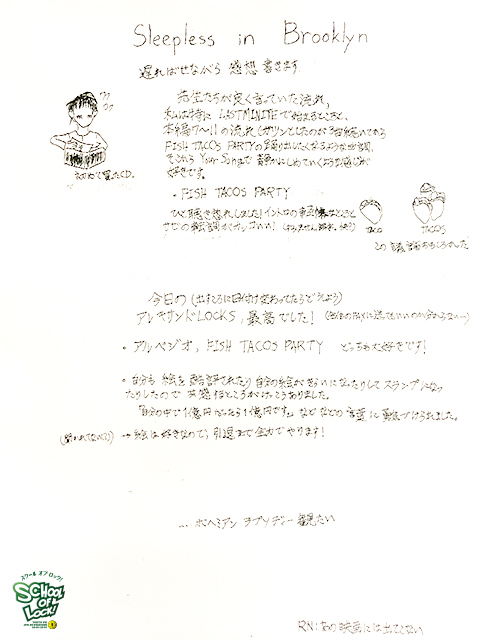 Sleepless in Brooklyn
遅ればせながら 感想 書きます
先生たちが良く言っていた流れ,
私は特に LASTMINITEで始まるところと、
本編7〜11の流れ(ガツンとしたのが3曲続いてから
FISH TACOS PARTYの踊り出したくなるような曲調,
そこから Your Songで静かにしめていくような感じが
好きです。
はじめて買ったCD.
・FISH TACOS PARTY
ひと聴き惚れしました!イントロの軽快なところと
サビの転調がカッコいい!
TACO
TACOS
この議論おもしろかった
今日の(出すころに日付け変わってたらどうしよう)
アレキサンドLOCKS, 最高でした!
・アルペジオ, FISH TACOS PARTY どっちも大好きです!
・自分も 絵を 酷評されたり 自分の絵がきらいになったりして スランプになっ
たりしたので 共感するところがけっこうありました。
「自分の中で1億円だったら1億円です。」などなどの言葉に勇気づけられました。
(聞かれてないけど) →絵は好きなので, 引退まで全力でやります!
... ボヘミアン ラプソディー 観たい
スクール オブ ロック!
SCHOOL
OF
LOCK!
RN:あの映画には出てこない